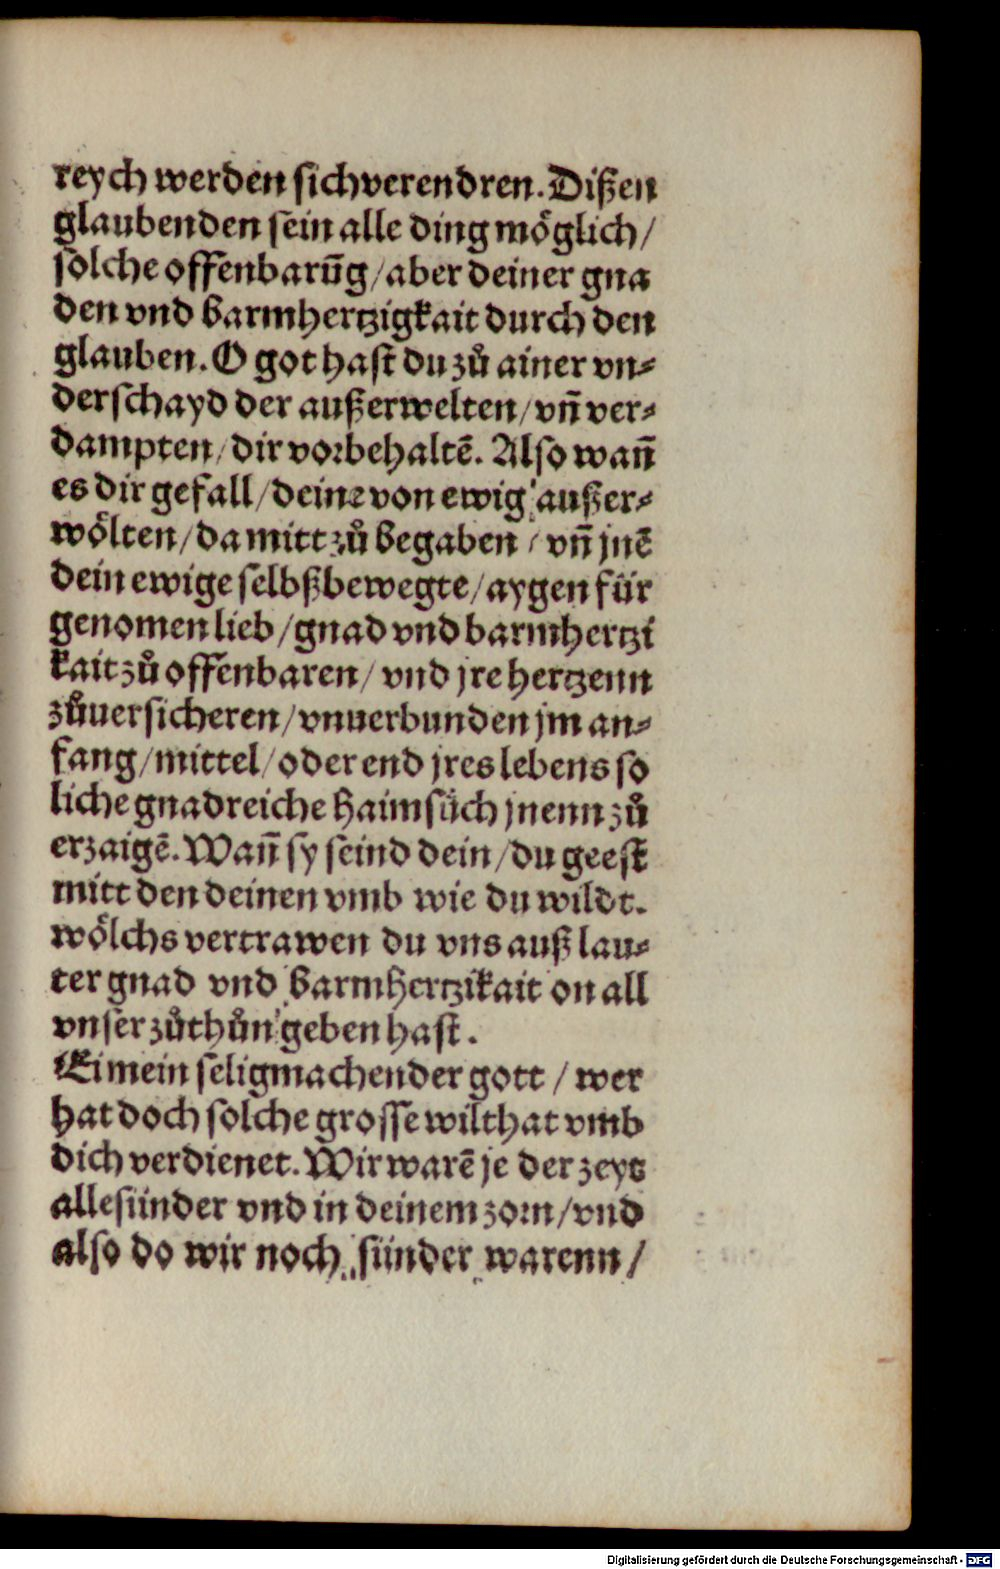 reych werden sich verendren. Dißen
glaubenden sein alle ding möglich/
solche offenbarūg/aber deiner gna
den vnd barmhertzigkait durch den
glauben. O got hast du zů ainer vn⸗
derschayd der außerwelten/vñ ver⸗
dampten/dir vorbehaltē. Also wañ
es dir gefall/deine von ewig außer⸗
wölten/da mitt zů begaben/vñ jnē
dein ewige selbßbewegte/aygen für
genomen lieb/gnad vnd barmhertzi
kait zů offenbaren/vnd jre hertzenn
zůuersicheren/vnuerbunden jm an⸗
fang/mittel/oder end jres lebens so
liche gnadreiche haimsůch jnenn zů
erzaigē. Wañ sy seind dein/du geest
mitt den deinen vmb wie du wildt.
wölchs vertrawen du vns auß lau⸗
ter gnad vnd barmhertzikait on all
vnser zůthůn geben hast.
Ei mein seligmachender gott / wer
hat doch solche grosse wilthat vmb
dich verdienet. Wir warē je der zeyt
alle sünder vnd in deinem zorn/vnd
also do wir noch sünder warenn/
Digitalisierung gefördert durch die Deutsche Forschungsgemeinschaft - DFG